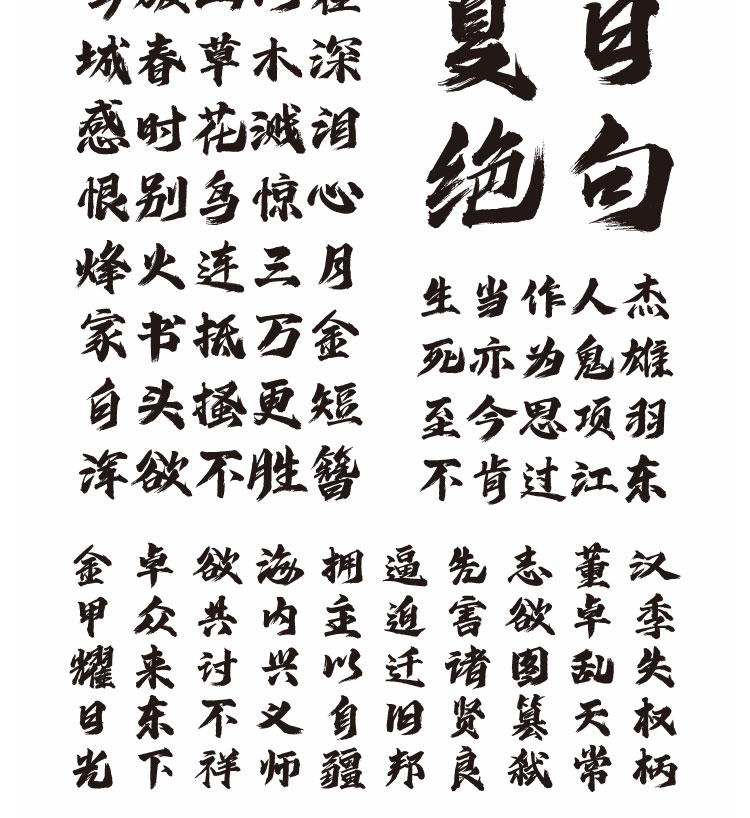 城春草木深
感时花溅泪
恨别鸟惊心
烽火连三月
家书抵万金
白头搔更短
浑欲不胜簪
夏日
绝句
生当作人杰
死亦为鬼雄
至今思项羽
不肯过江东
汉季失权柄
董卓乱天常
志欲图篡弑
先害诸贤良
逼迫迁旧邦
拥主以自疆
海内兴义师
欲共讨不祥
卓众来东下
金甲耀日光